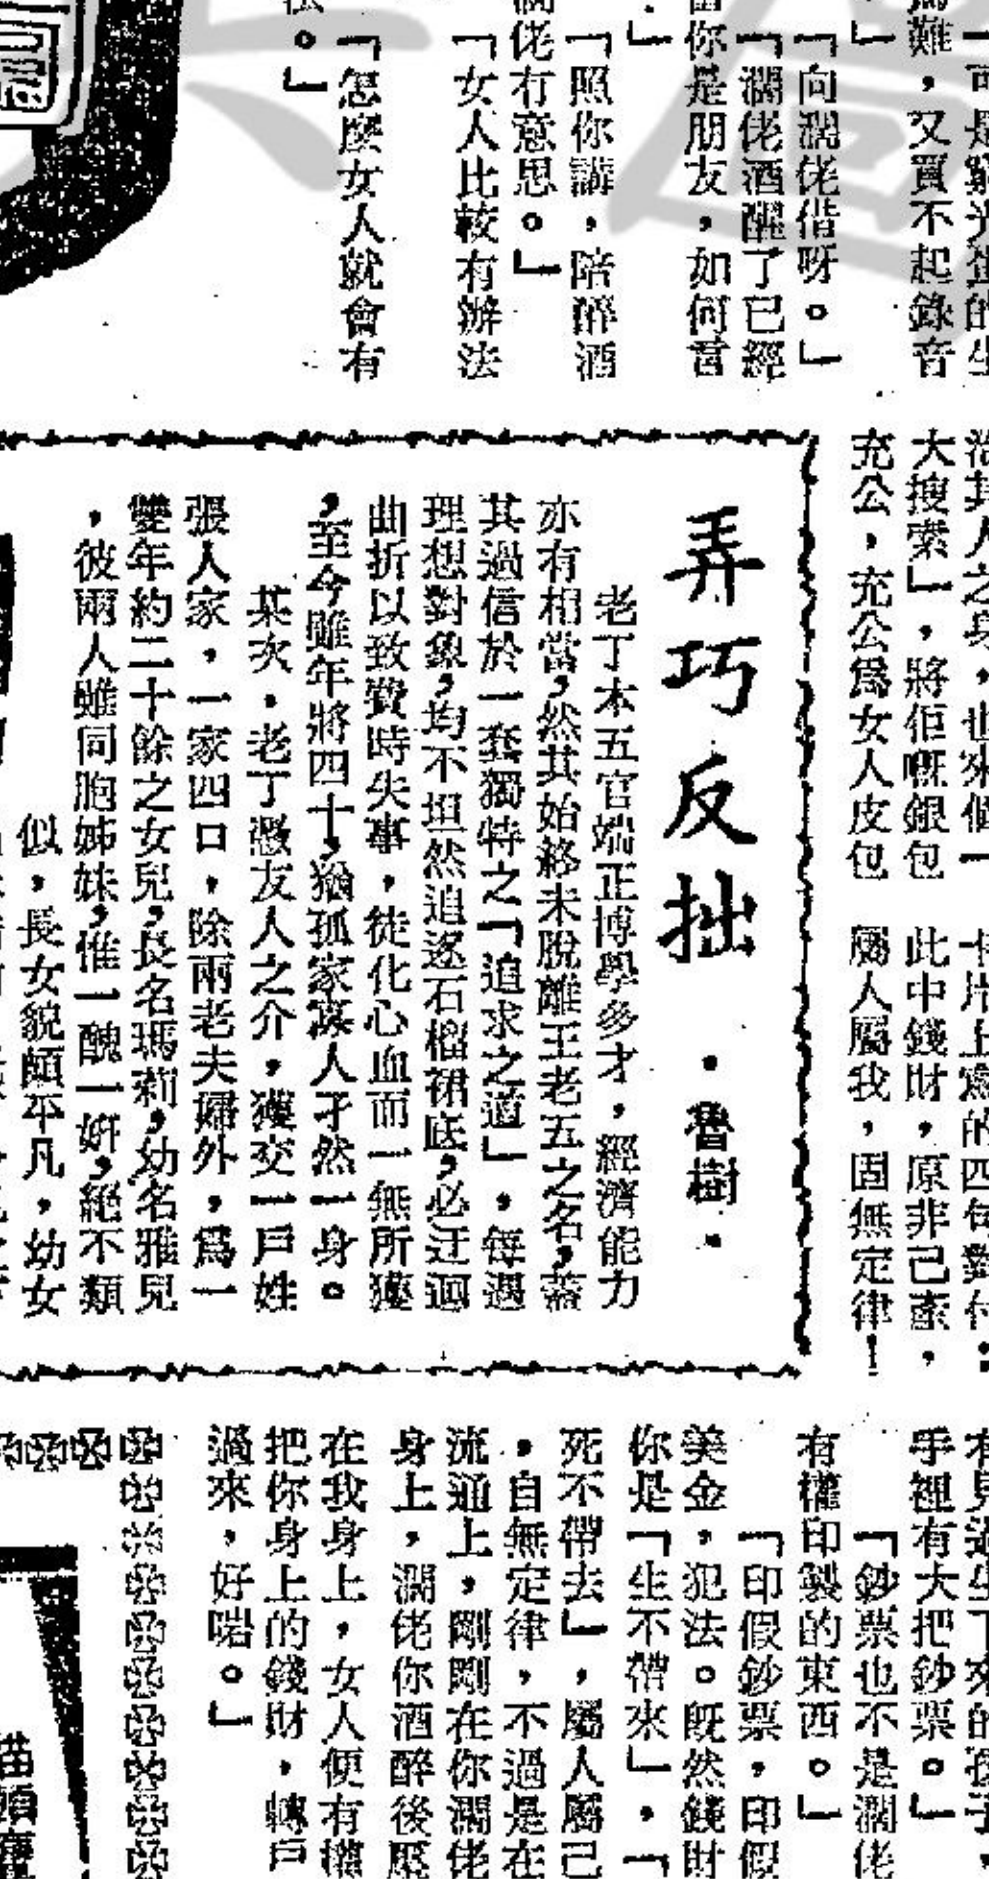 「可是窮光蛋的生
為難，又買不起錄音
」
「向濶佬借呀。」
「濶佬酒醒了已經
當你是朋友，如何言
」
「照你講，陪醉酒
濶佬冇意思。」
「女人比較有辦法
「怎麼女人就會有
法。」
治其人之身，也來個一
大搜索」，將佢嘅銀包
充公，充公為女人皮包
卡片上寫的四句對付：
此中錢財，原非己產，
屬人屬我，固無定律！
弄巧反拙
・魯樹・
老丁本五官端正博學多才，經濟能力
亦有相當，然其始終未脫離王老五之名，蓋
其過信於一套獨特之「追求之道」，每遇
理想對象，均不坦然追逐石榴裙底，必迂迴
曲折以致費時失事，徒化心血而一無所獲
，至今雖年將四十，猶孤家寡人孑然一身。
某次，老丁憑友人之介，獲交一戶姓
張人家，一家四口，除兩老夫婦外，為一
雙年約二十餘之女兒，長名瑪莉，幼名雅兒
，彼兩人雖同胞姊妹，惟一醜一妍，絕不類
似，長女貌頗平凡，幼女
有見過生下來的孩子，
手裡有大把鈔票。」
「鈔票也不是濶佬
有權印製的東西。」
「印假鈔票，印假
美金，犯法。既然錢財
你是「生不帶來」，「
死不帶去」，屬人屬己
，自無定律，不過是在
流通上，剛剛在你濶佬
身上，濶佬你酒醉後壓
在我身上，女人便有權
把你身上的錢財，轉戶
過來，好啱。」